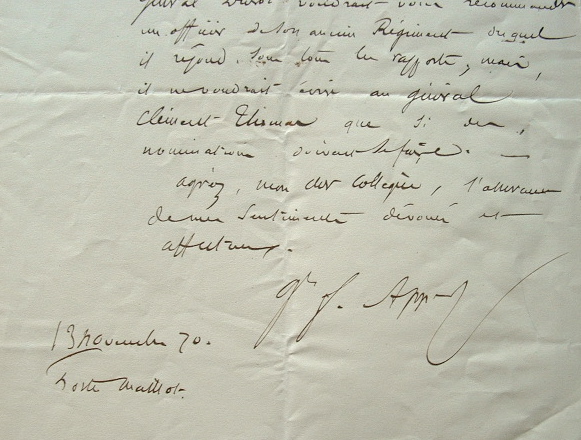 général voudrait vous recommander
un officier de son ancien Régiment duquel
il répond sous tous les rapports, mais,
il ne voudrait écrire au général
Clément Thomas que si des
nominations doivent se faire. —
agréez, mon cher Collègue, l'assurance
de mes Sentiments dévoués et
affectueux.
13 novembre 70.